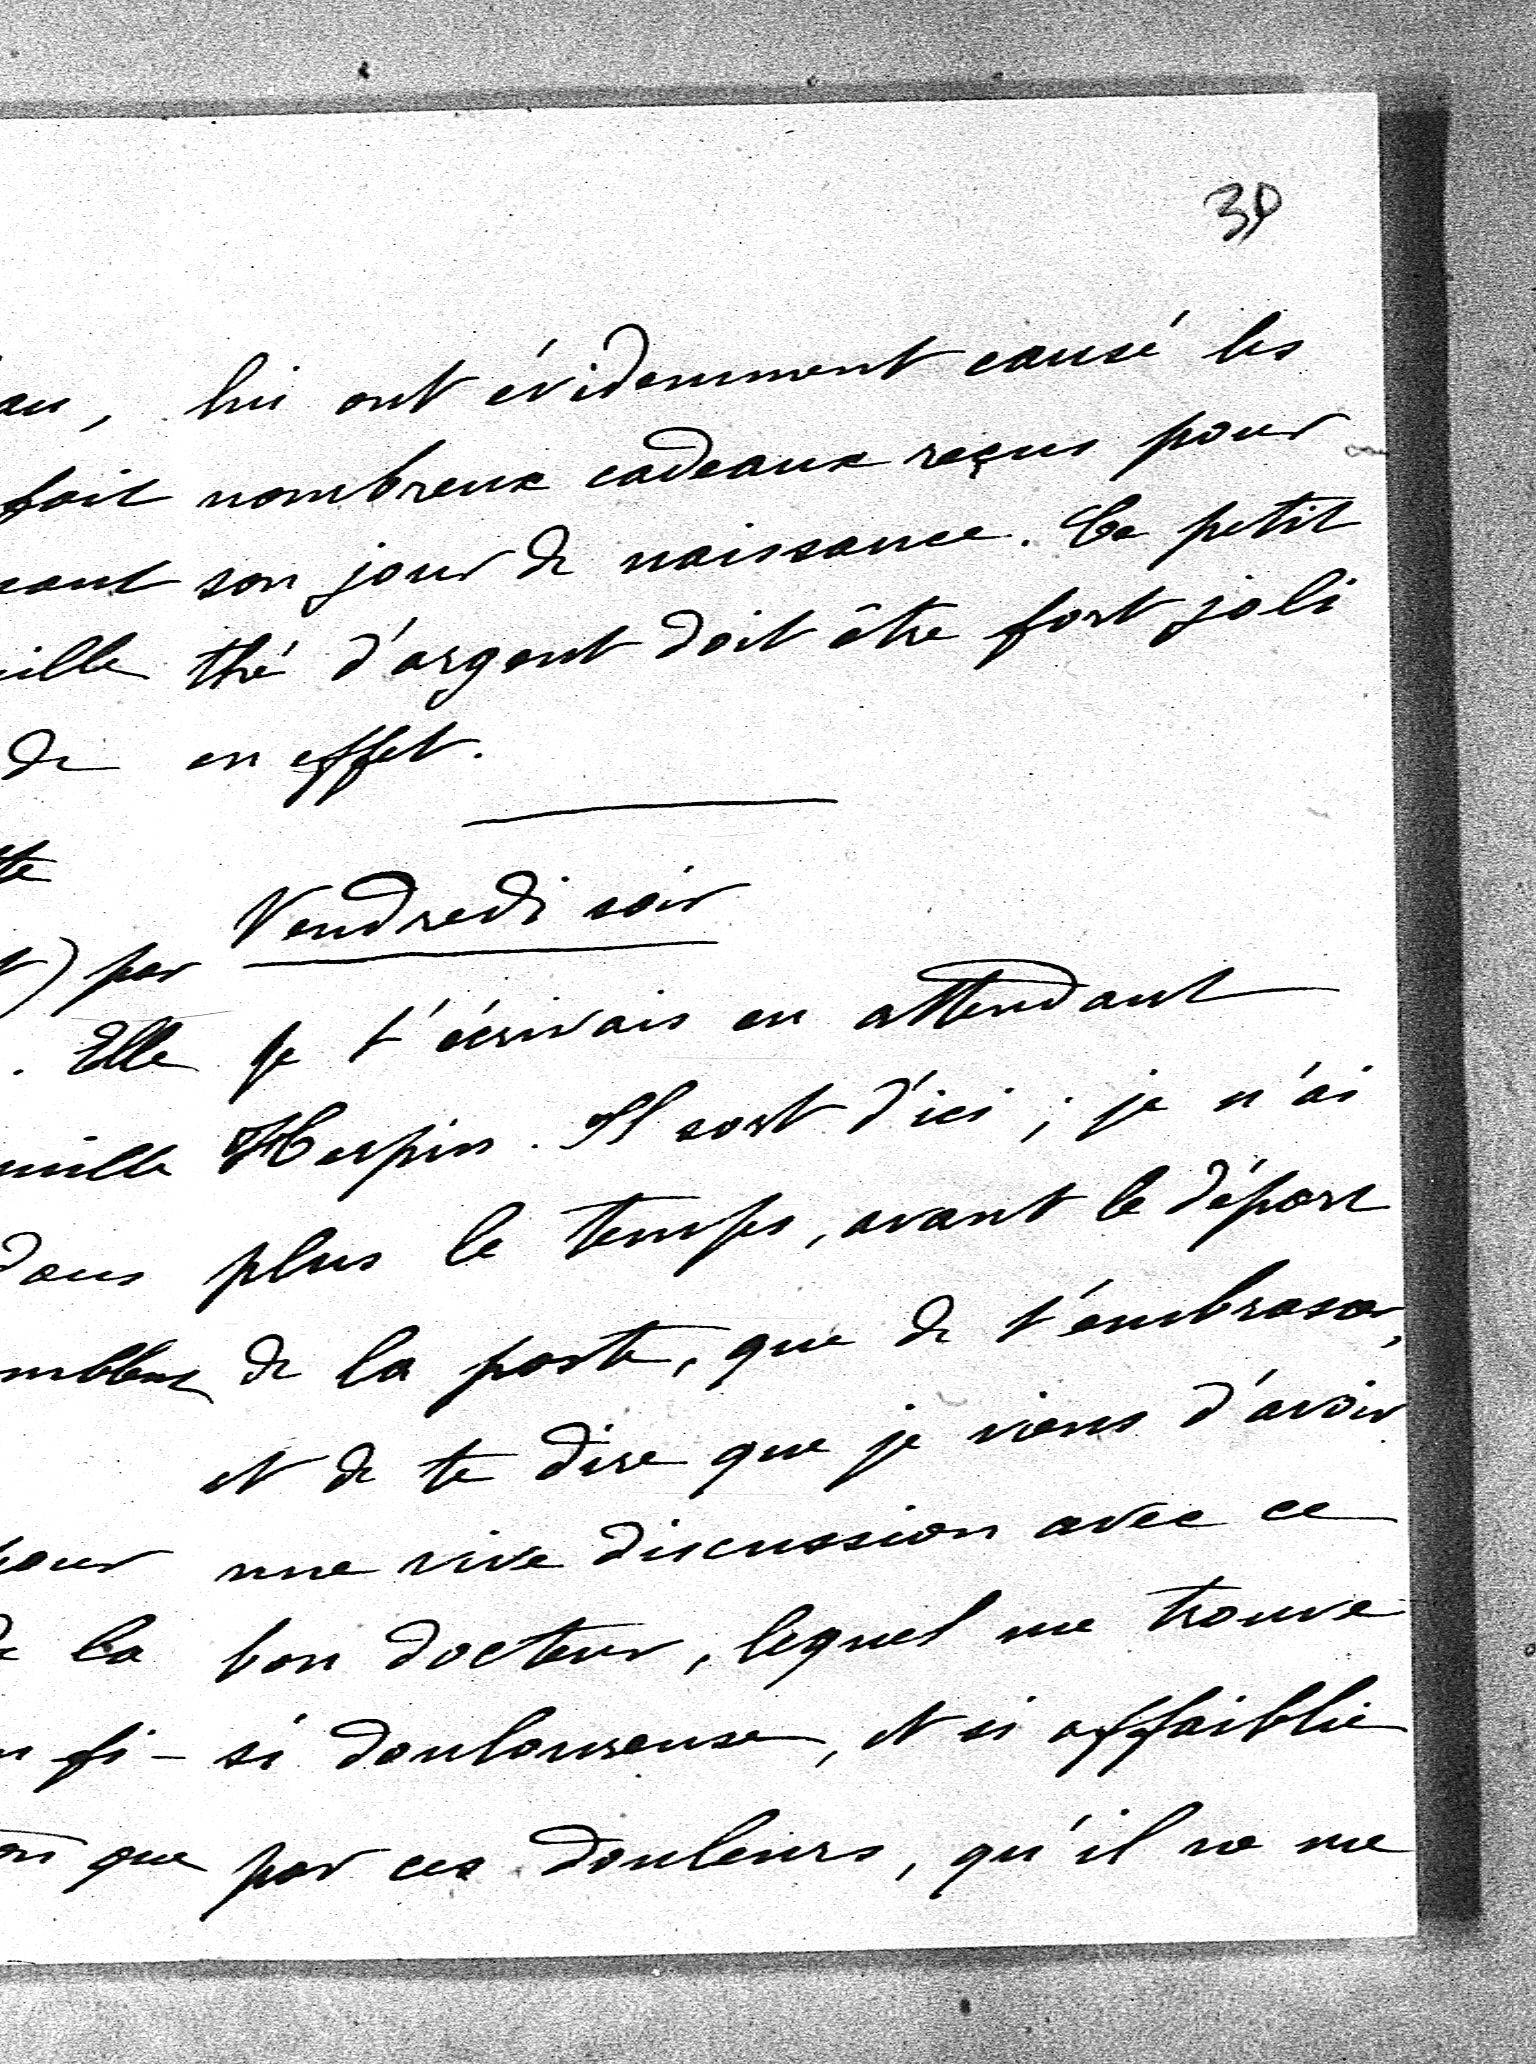 39
lui ont évidemment causé les
nombreux cadeaux reçus pour
son jour de naissance. Ce petit
thé d'argent doit être fort joli
en effet.
Vendredi soir
Je t'écrivais en attendant
Herpin. Il sort d'ici ; je n'ai
plus le temps, avant le départ
de la poste, que de t'embrasser,
et de te dire que je viens d'avoir
une vive discussion avec ce
bon docteur, lequel me trouve
si douloureuse, et si affaiblie
par ces douleurs, qu'il ne me
par
. Elle
dans
de la
que